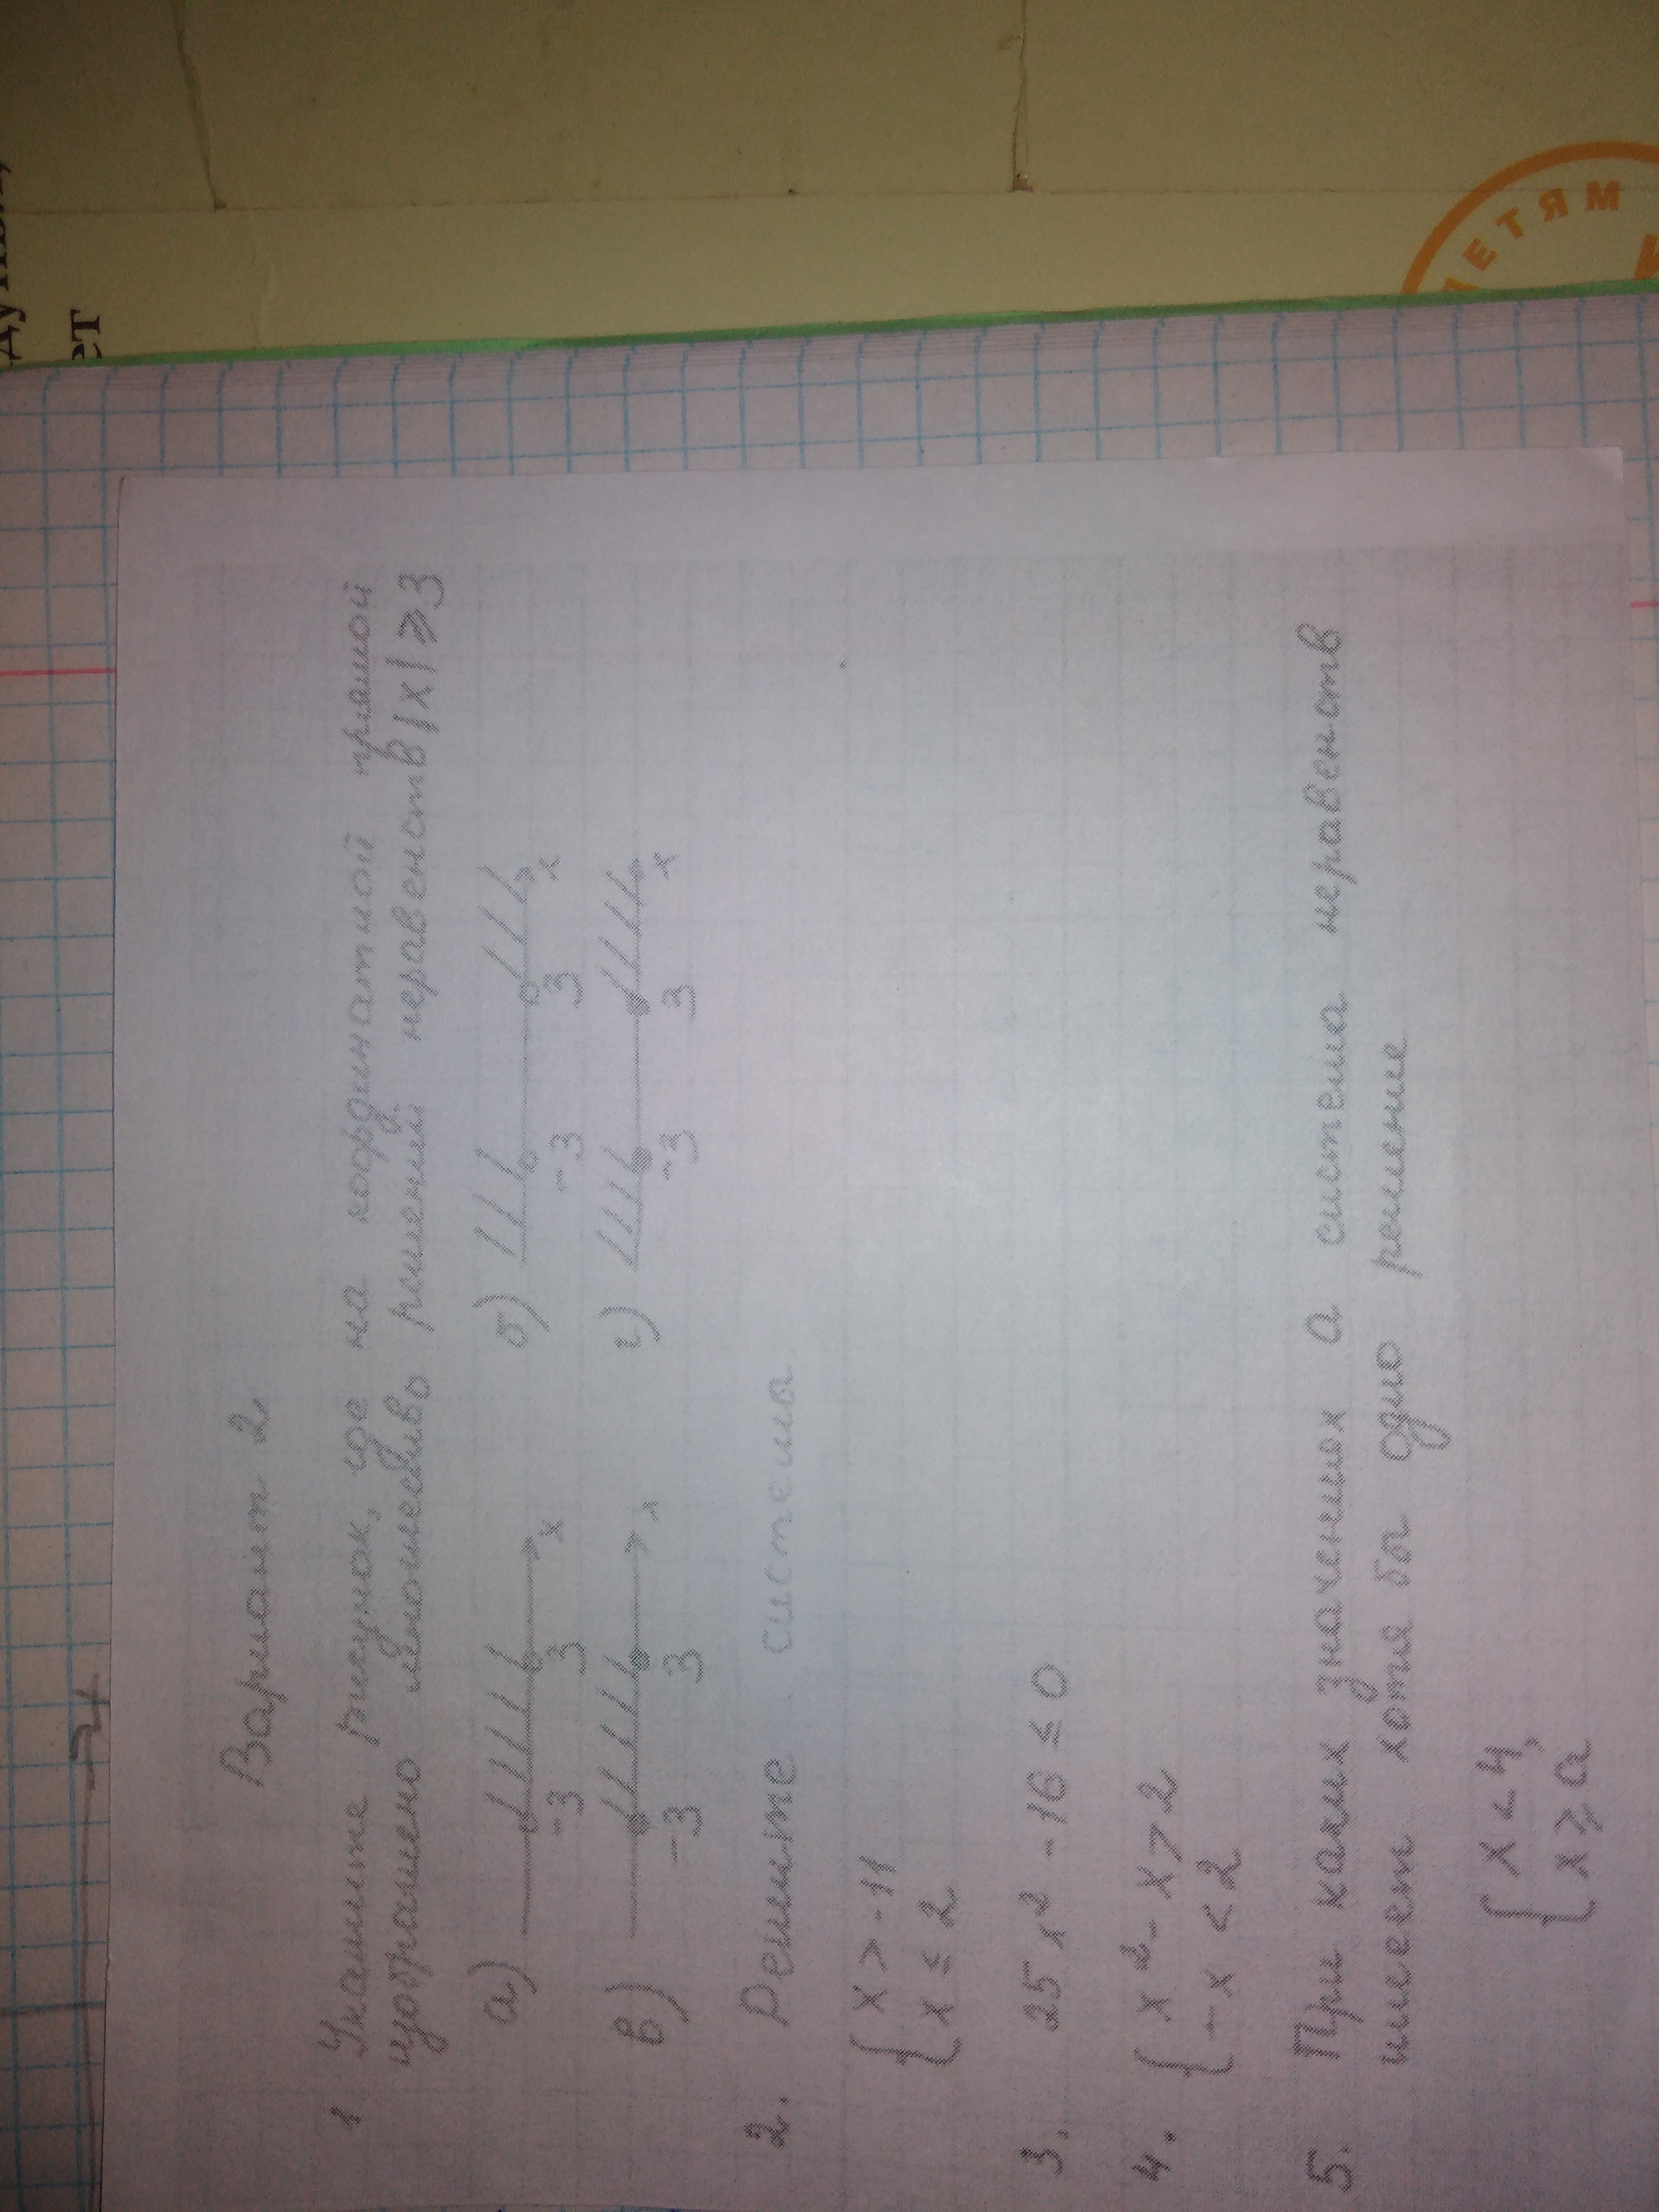 Вариант 2
1 Укажите рисунок, где на кординатной прямой
изображено множество решений неравенств |x| ⩾ 3
а) -3 3 x б) -3 3 x
в) -3 3 x г) -3 3 x
2. Решите система
{ x > -11
x ≤ 2
3. 25x² - 16 ≤ 0
4. { x² - x > 2
-x < 2
5. При каких значениях а система неравенств
имеет хотя бы одно решение
{ x < 4,
x ⩾ a
ЕТЯМ
ет